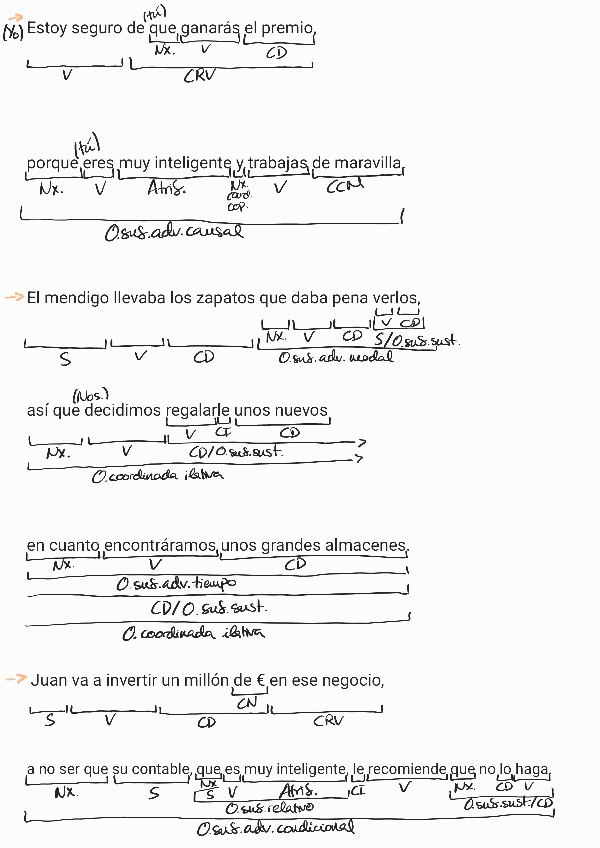 (tú)
→ (Yo) Estoy seguro de que ganarás el premio,
Nx. V CD
V CRV
(tú)
porque eres muy inteligente y trabajas de maravilla.
Nx. V Atrib. Nx. coord. cop. V CCM
O.sub.adv.causal
→ El mendigo llevaba los zapatos que daba pena verlos,
V CD
Nx. V CD S/O.sub.sust.
S V CD O.sub.adv.modal
(Nos.)
así que decidimos regalarle unos nuevos
V CI CD
Nx. V CD/O.sub.sust.
O.coordinada ilativa
en cuanto encontráramos unos grandes almacenes.
Nx. V CD
O.sub.adv.tiempo
CD/O.sub.sust.
O.coordinada ilativa
→ Juan va a invertir un millón de € en ese negocio,
CN
S V CD CRV
a no ser que su contable, que es muy inteligente, le recomiende que no lo haga.
Nx. S Nx S V Atrib. CI V Nx. CD V
O.sub.relativo O.sub.sust/CD
O.sub.adv.condicional